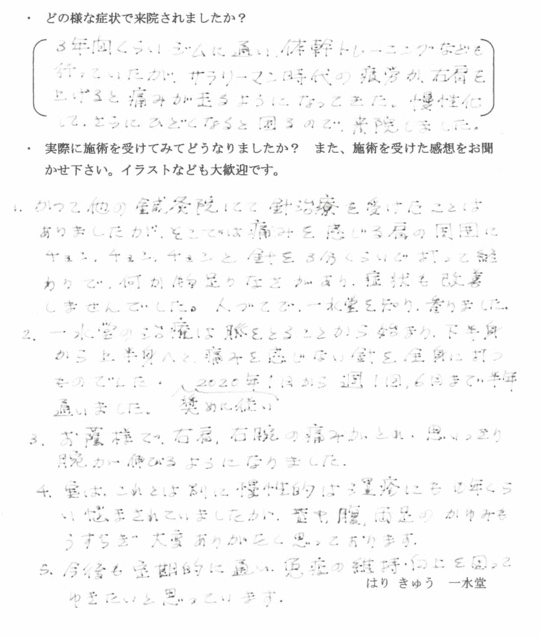 ・ どの様な症状で来院されましたか？
3年間くらいジムに通い、体幹トレーニングなども
行っていたが、サラリーマン時代の疲労か、右肩を
上げると痛みが走るようになってきた。慢性化
して、さらにひどくなると困るので、来院しました。
・ 実際に施術を受けてみてどうなりましたか？ また、施術を受けた感想をお聞
かせ下さい。イラストなども大歓迎です。
1. かつて他の鍼灸院にて針治療を受けたことは
ありましたが、そこでは痛みを感じる肩の周囲に
チョン、チョン、チョンと針を3分くらいで打って終
わりで、何か物足りなさがあり、症状も改善
しませんでした。人づてで、一水堂を知り、参りました。
2. 一水堂の治療は脈をとることから始まり、下半身
から上半身へと、痛みを感じない針を全身に打つ
ものでした。2020年1月から週1回、6月まで半年
通いました。奨めに従い
3. お蔭様で、右肩、右腕の痛みがとれ、思いっきり
腕が伸びるようになりました。
4. 実は、これとは別に慢性的な にも くら
い悩まされていましたが、 腹、両足のかゆみも
うすらぎ 大変ありがたく思っております。
5. 今後も定期的に通い、 の維持・向上を図って
ゆきたいと思っています。
はり きゅう 一水堂